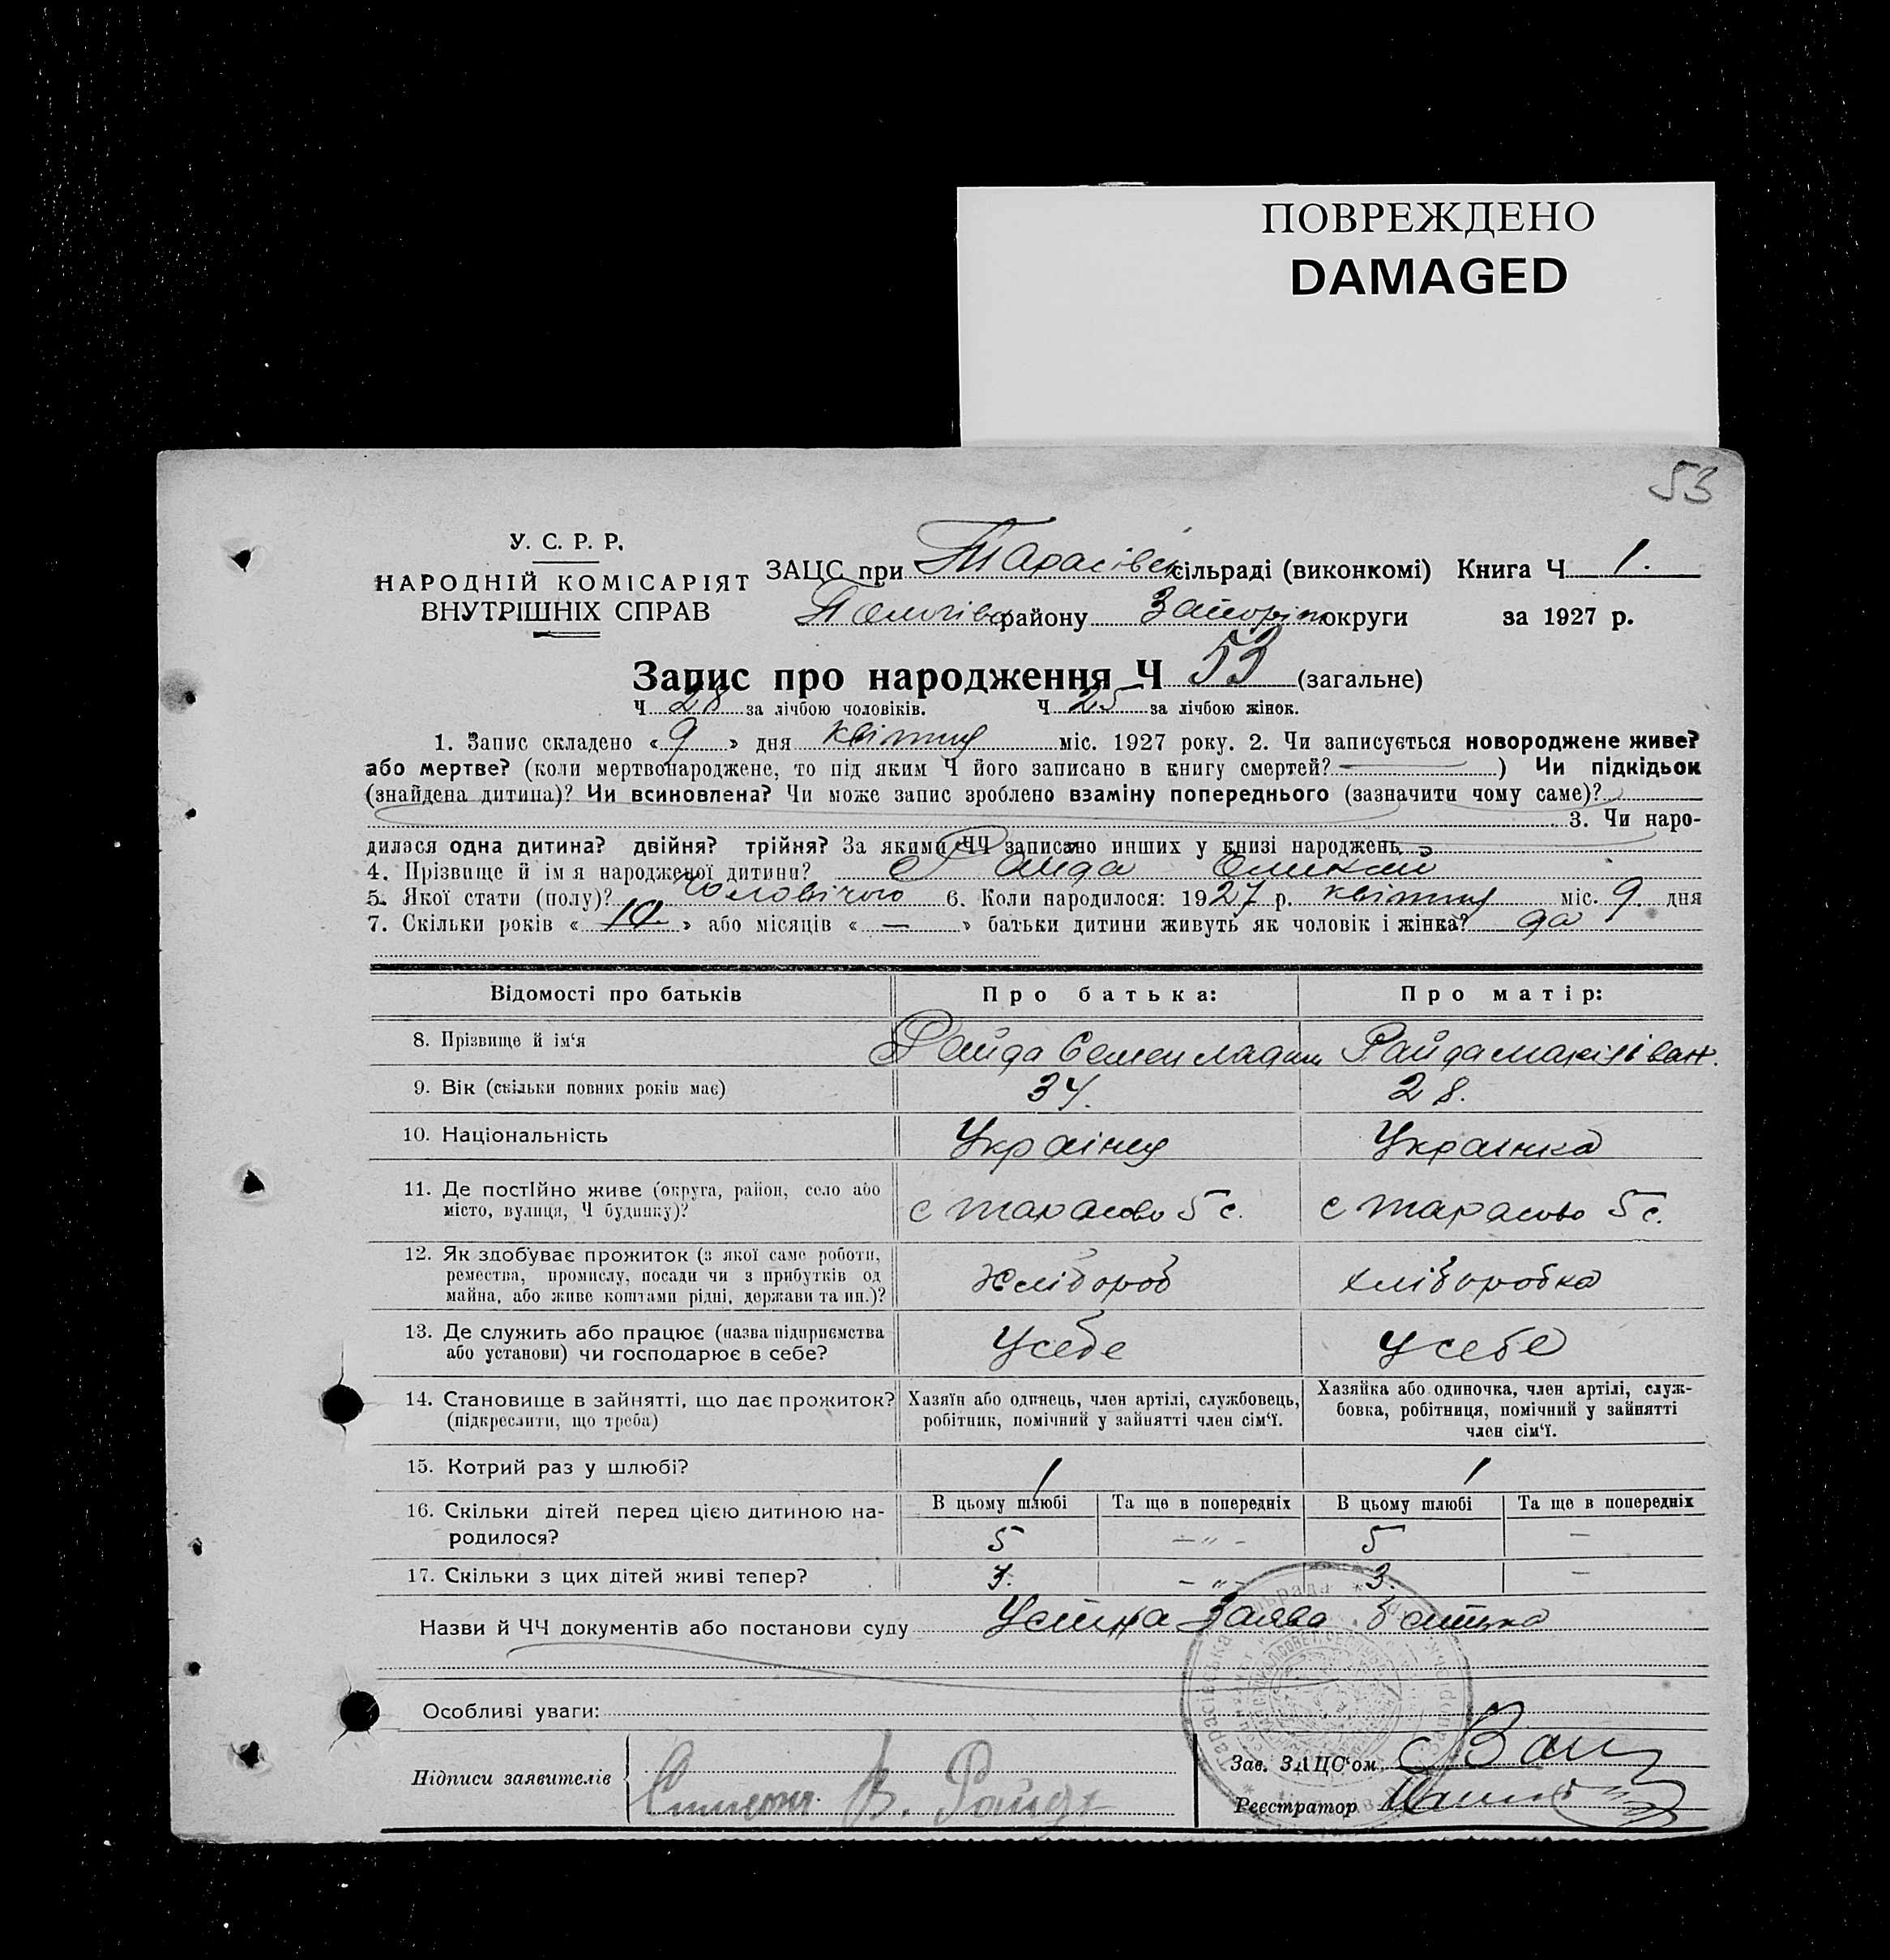 ПОВРЕЖДЕНО
DAMAGED
53
У. С. Р. Р.
НАРОДНІЙ КОМІСАРІЯТ
ВНУТРІШНІХ СПРАВ
ЗАЦС при Тарасівск сільраді (виконкомі) Книга Ч 1.
Пологівск району Запоріж округи за 1927 р.
Запис про народження Ч 53 (загальне)
Ч 28 за лічбою чоловіків. Ч 25 за лічбою жінок.
1. Запис складено « 9 » дня квітня міс. 1927 року. 2. Чи записується новороджене живе?
або мертве? (коли мертвонароджене, то під яким Ч його записано в книгу смертей? — ) Чи підкідьок
(знайдена дитина)? Чи всиновлена? Чи може запис зроблено взаміну попереднього (зазначити чому саме)?
3. Чи наро-
дилася одна дитина? двійня? трійня? За якими ЧЧ записано инших у книзі народжень
4. Прізвище й ім'я народженої дитини? Райда
5. Якої стати (полу)? чоловічого 6. Коли народилося: 1927 р. квітня міс. 9. дня
7. Скільки років « 10 » або місяців « — » батьки дитини живуть як чоловік і жінка? да
Відомості про батьків
Про батька:
Про матір:
8. Прізвище й ім'я
Райда Семен
Райда Марія Іван.
9. Вік (скільки повних років має)
34.
28.
10. Національність
Украінец
Украінка
11. Де постійно живе (округа, район, село або
місто, вулиця, Ч будинку)?
с Тарасово 5 с.
с Тарасово 5 с.
12. Як здобуває прожиток (з якої саме роботи,
ремества, промислу, посади чи з прибутків од
майна, або живе коштами рідні, держави та ин.)?
Хлібороб
хліборобка
13. Де служить або працює (назва підприємства
або установи) чи господарює в себе?
У себе
У себе
14. Становище в зайнятті, що дає прожиток?
(підкреслити, що треба)
Хазяїн або одинець, член артілі, службовець,
робітник, помічний у зайнятті член сім'ї.
Хазяйка або одиночка, член артілі, служ-
бовка, робітниця, помічний у зайнятті
член сім'ї.
15. Котрий раз у шлюбі?
1
1
16. Скільки дітей перед цією дитиною на-
родилося?
В цьому шлюбі
Та ще в попередніх
В цьому шлюбі
Та ще в попередніх
5
— „ -
5
—
17. Скільки з цих дітей живі тепер?
3.
— „ -
3.
—
Назви й ЧЧ документів або постанови суду Устна Заява батька
Особливі уваги:
Підписи заявителів
В. Райда
Зав. ЗАЦС'ом
Реєстратор